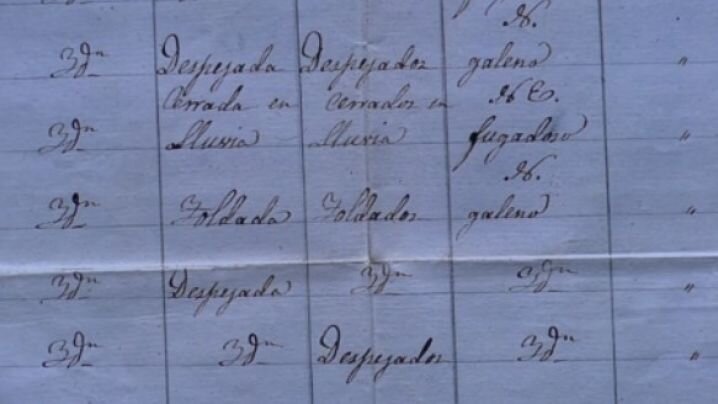 N.
Ydm Despejada Despejados galeno "
Cerrada en cerrados en N E.
Ydm lluvia lluvia fugadoso "
N.
Ydm Toldada Toldados galeno "
Ydm Despejada Ydm Ydm "
Ydm Ydm Despejados Ydm "